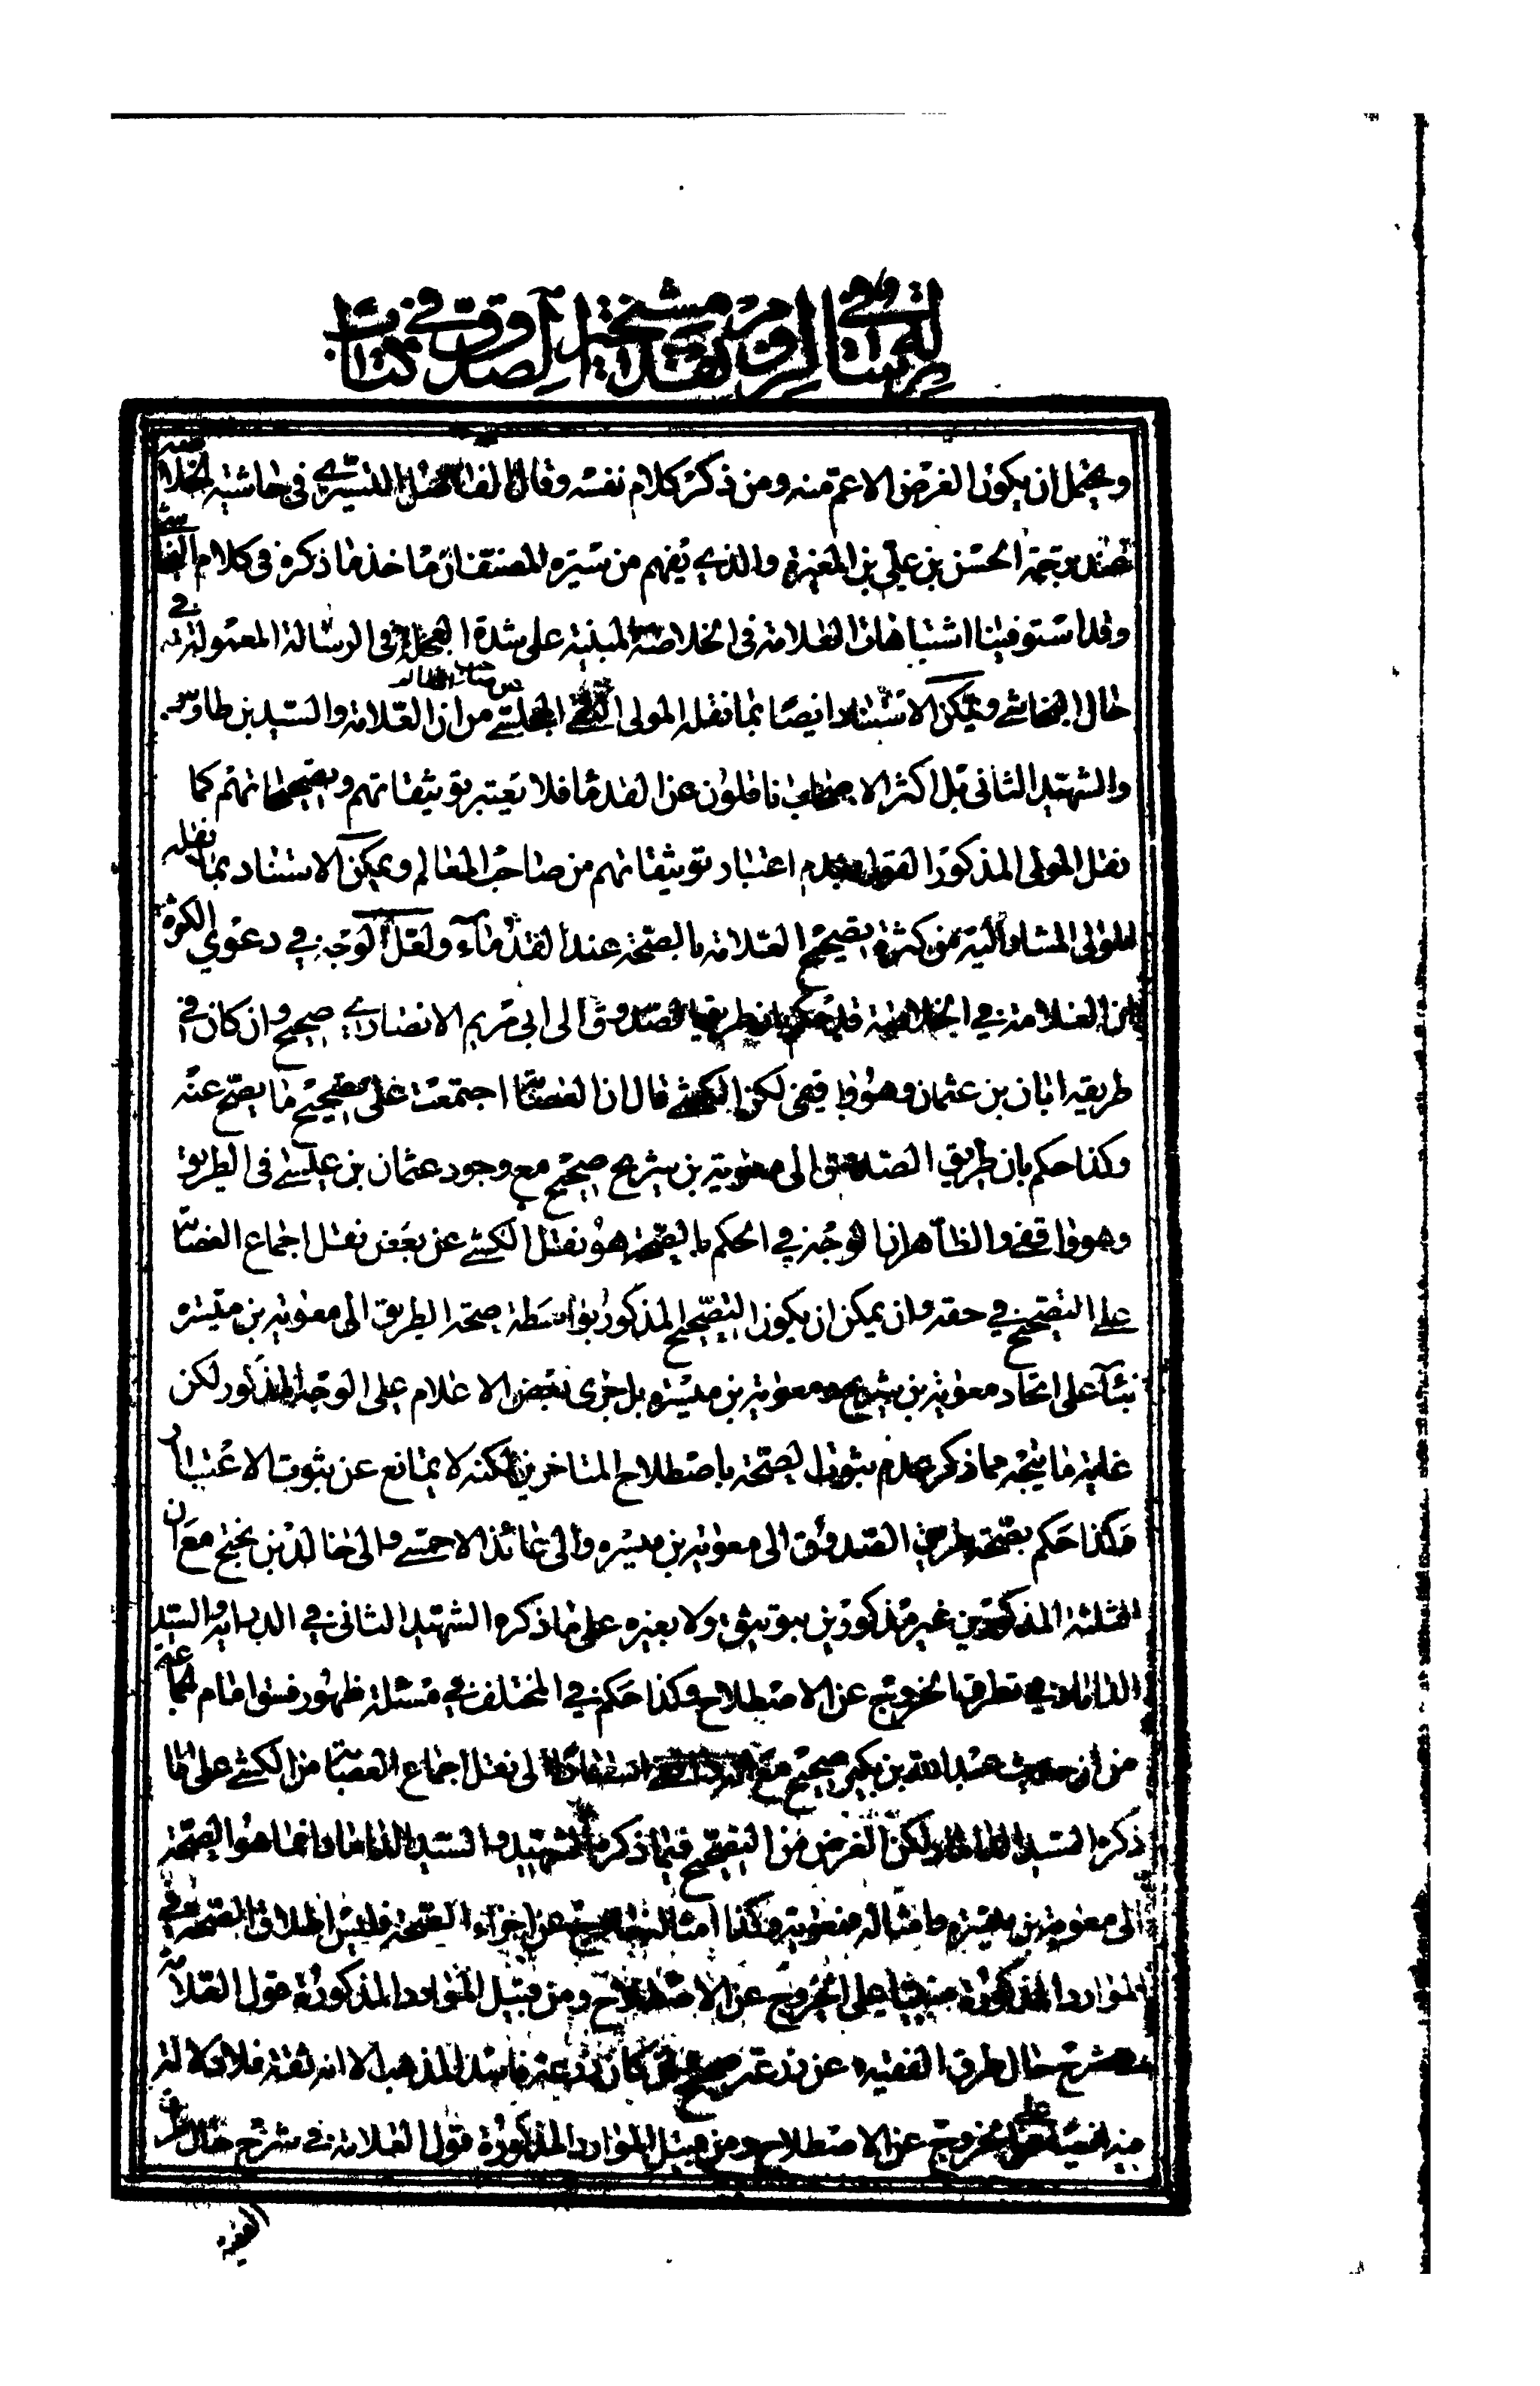 ويحتمل ان يكون الغرض الاعم منه ومن ذكر كلام نفسه وقال الفاضل التستري فى حاشية الخلاصة
عند ترجمة الحسن بن علي بن المغيرة والذي يفهم من سيرة المصنف ان ماخذ ما ذكره فى كلام
وقد استوفينا اشتباهات العلامة فى الخلاصة المبنية على شدة العجلة فى الرسالة المعمولة فى
حال النجاشي ويمكن الاستناد ايضا بما نقله المولى التقي المجلسي من ان العلامة والسيد بن طاوس
والشهيد الثانى بل اكثر الاصحاب ناقلون عن القدما فلا يعتبر توثيقاتهم وتصحيحاتهم كما
نقل المولى المذكور القول بعدم اعتبار توثيقاتهم من صاحب المعالم ويمكن الاستناد بما نقله
المولى المشار اليه من كثرة تصحيح العلامة بالصحة عند القدماء ولعل الوجه في دعوي الكثرة
ان العلامة في الخلاصة قد حكم بان طريق الصدوق الى ابى مريم الانصاري صحيح وان كان في
طريقه ابان بن عثمان وهو واقفى لكن الكشي قال ان العصابة اجتمعت على تصحيح ما يصح عنه
وكذا حكم بان طريق الصدوق الى معوية بن شريح صحيح مع وجود عثمان بن عيسي فى الطريق
وهو واقفي والظاهر ان الوجه في الحكم بالصحة هو نقل الكشي عن بعض نقل اجماع العصابة
على التصحيح في حقه وان يمكن ان يكون التصحيح المذكور بواسطة صحة الطريق الى معوية بن ميسره
بناء على اتحاد معوية بن شريح ومعوية بن ميسره بل جرى بعض الاعلام على الوجه المذكور لكن
غاية ما يتجه مما ذكر عدم ثبوت الصحة باصطلاح المتاخرين لكنه لا يمانع عن ثبوت الاعتبار
وكذا حكم بصحة طريق الصدوق الى معوية بن ميسره والى عائذ الاحمسي والى خالد بن نجيح مع ان
الثلثة المذكورين غير مذكورين بتوثيق ولا بغيره على ما ذكره الشهيد الثانى في الدراية والسيد
الداماد في تطرق الخروج عن الاصطلاح وكذا حكم في المختلف في مسئلة ظهور فسق امام الجماعة
من ان حديث عبد الله بن بكير صحيح مع الى نقل اجماع العصابة من الكشي على ما
ذكره السيد الداماد ولكن الغرض من التصحيح فيما ذكره الشهيد والسيد الداماد انما هو الصحة
الى معوية بن ميسره وامثاله وكذا عن اجزاء الصحة فليس اطلاق الصحة في
الموارد المذكورة مبنيا على الخروج عن الاصطلاح ومن قبيل الموارد المذكورة قول العلامة
شرح حال طرق الفقيه عن زرعة صحيح وان كان زرعة فاسد المذهب الا انه ثقة فلا دلالة
فيه ايضا على الخروج عن الاصطلاح ومن قبيل الموارد المذكورة قول العلامة في شرح حال طرق
الفقيه